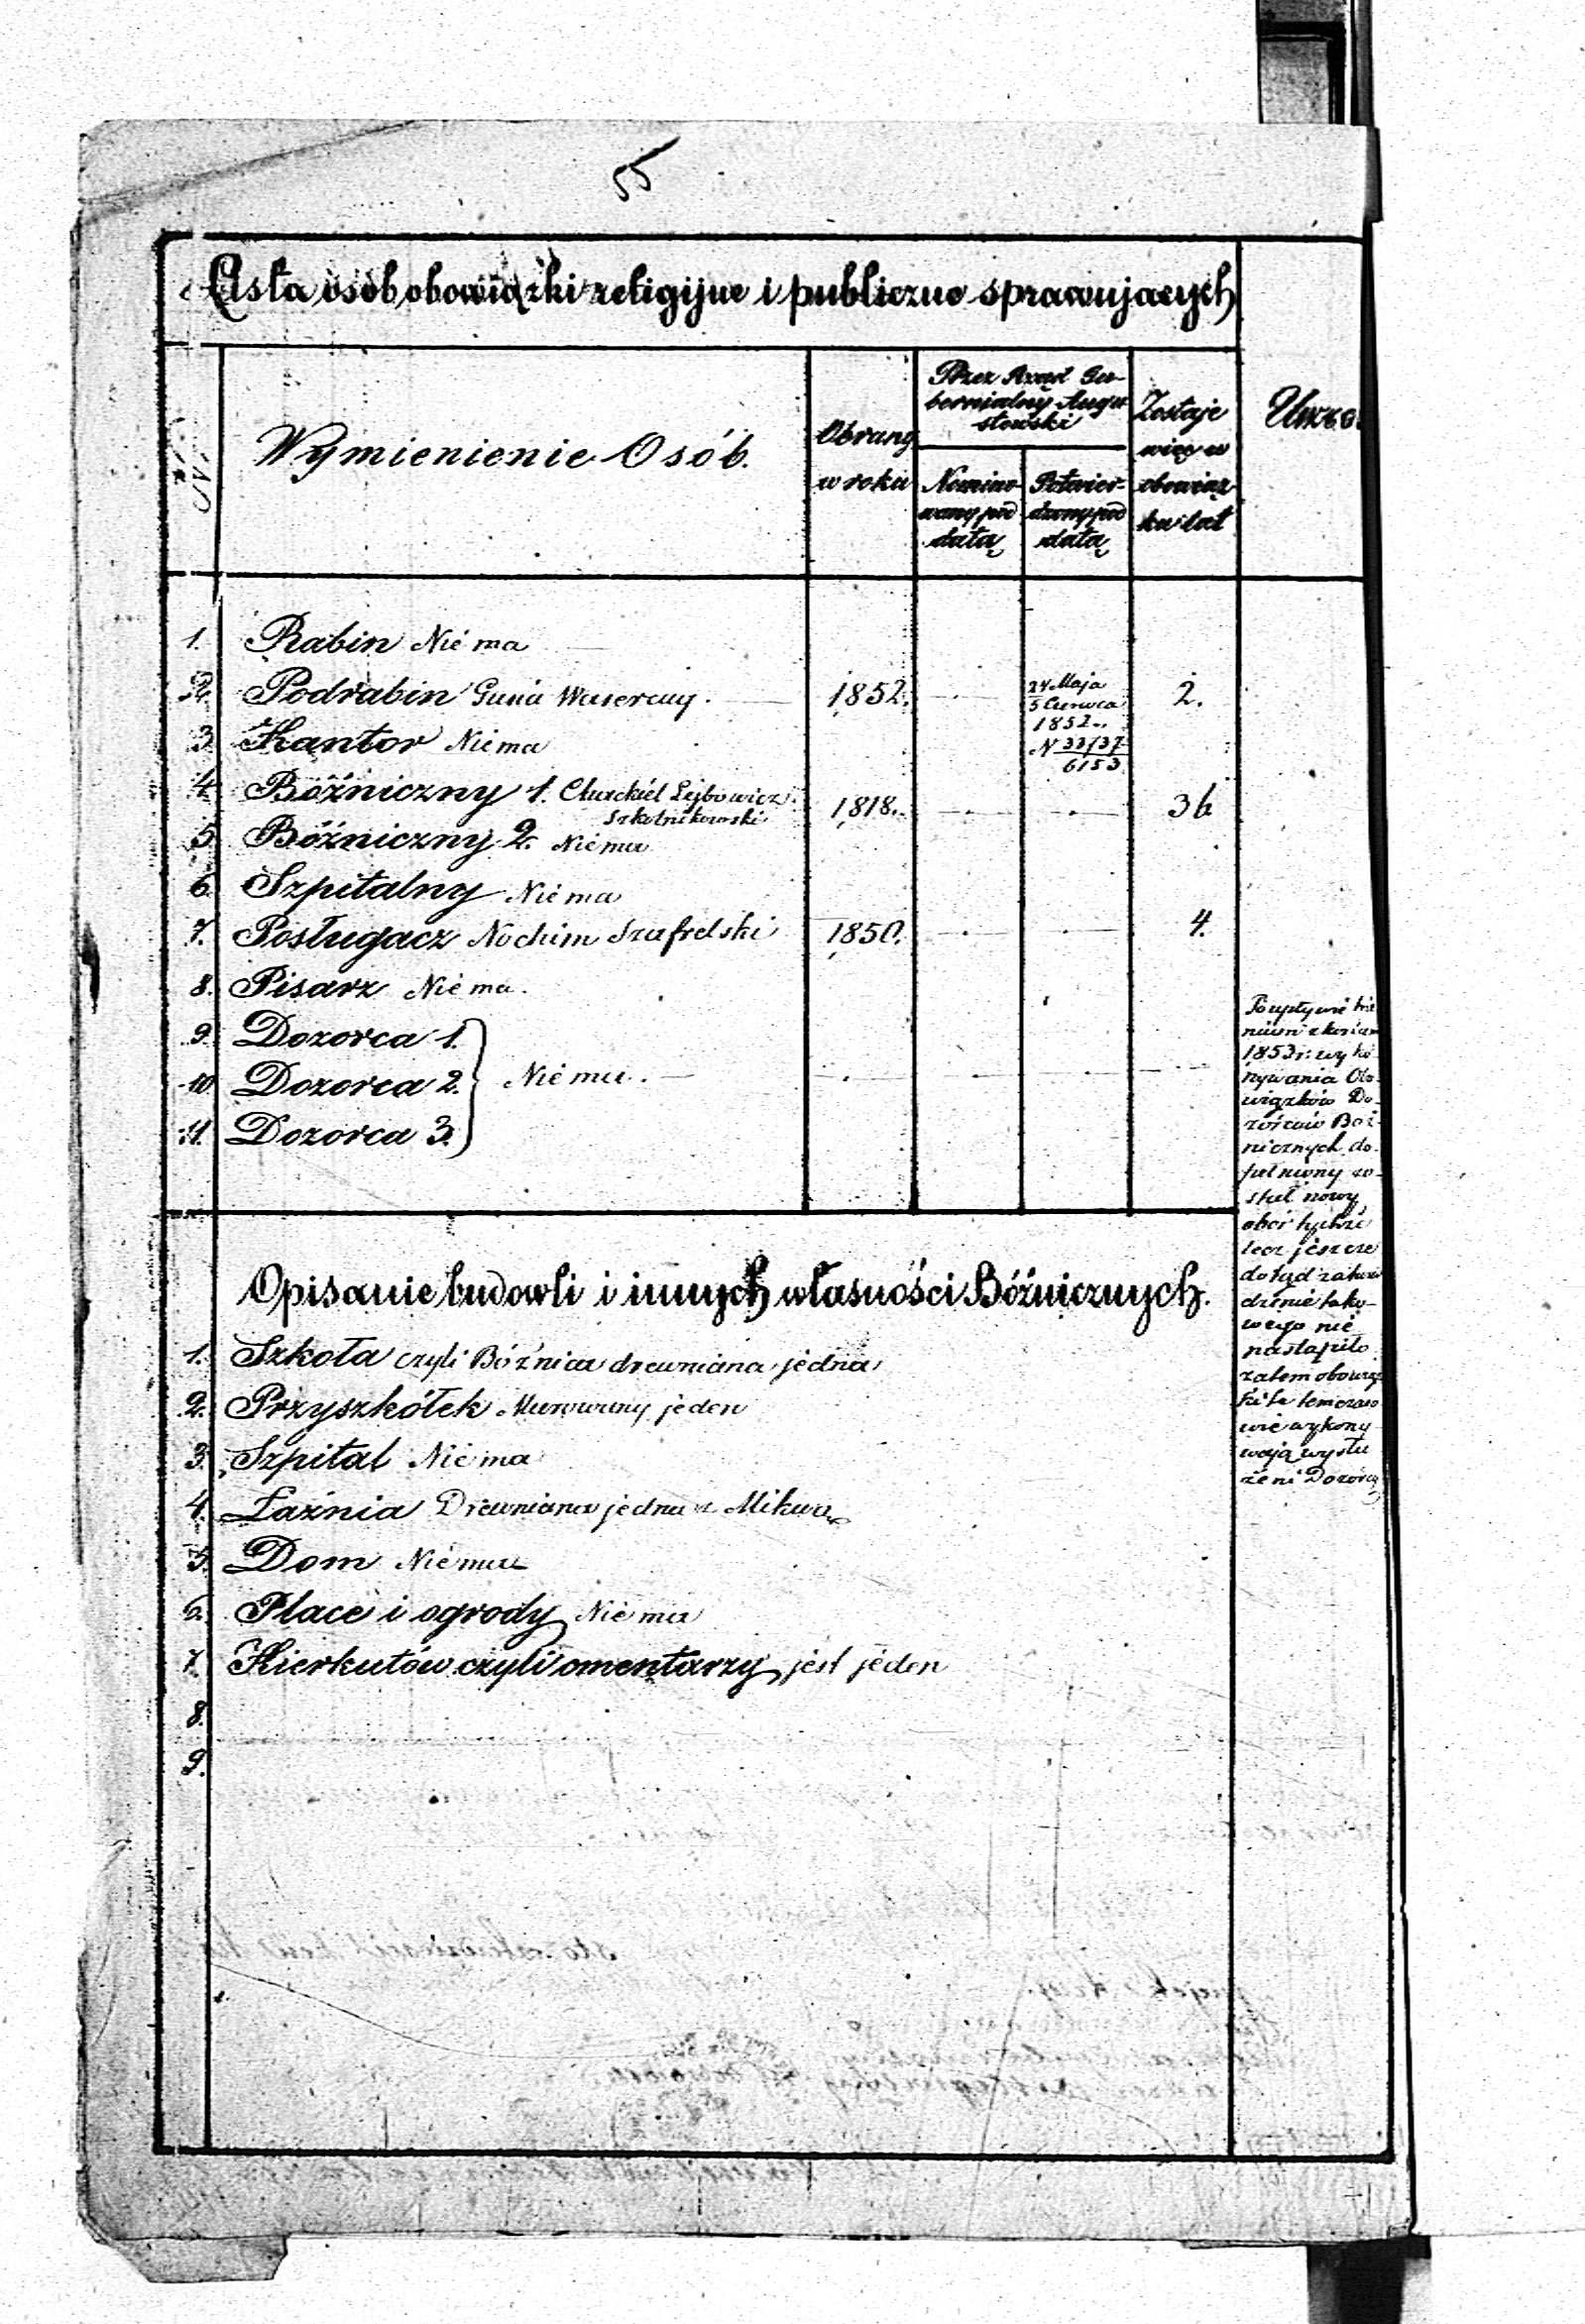 55
Lista osób obowiązki religijne i publiczne sprawujących
№
Wymienienie Osób.
Obrany
w roku
Przez Rząd Gu-
bernialny Augu-
stowski
Nomino-
wany pod
datą
Potwier-
dzony pod
datą
Zostaje
więc w
obowiąz
ku lat
1. Rabin Niéma
2. Podrabin 1852. 24 Maja 2.
5 Czerwca
1852.
N 33737
6153
3. Kantor Niéma
4. Bóźniczny 1. Lejbowicz 1818. 36
Szkolnikowski
5. Bóźniczny 2. Niéma
6. Szpitalny Niéma
7. Posługacz Nochim 1850. 4.
8. Pisarz Niéma.
9. Dozorca 1.
10. Dozorca 2. Niéma.
11. Dozorca 3.
1853 r. wyko-
nywania Obo-
wiązków Do-
zorców Bóź-
nicznych do-
pełniony zo-
stał nowy
obór tychże
lecz jeszcze
dotąd zatwier
dzenie tako-
wego nie
nastąpiło
zatem obowiąz
ki te temczaso
wie wykony
wają wysłu
żeni Dozorcy
Opisanie budowli i innych własności Bóźnicznych.
1. Szkoła czyli Bóźnica drewniana jedna
2. Przyszkółek Murowany jeden
3. Szpital Niéma
4. Łaźnia Drewniana jedna z Mikwą
5. Dom Niéma
6. Place i ogrody Niéma
7. Kierkutów czyli cmentarzy jest jeden
8.
9.